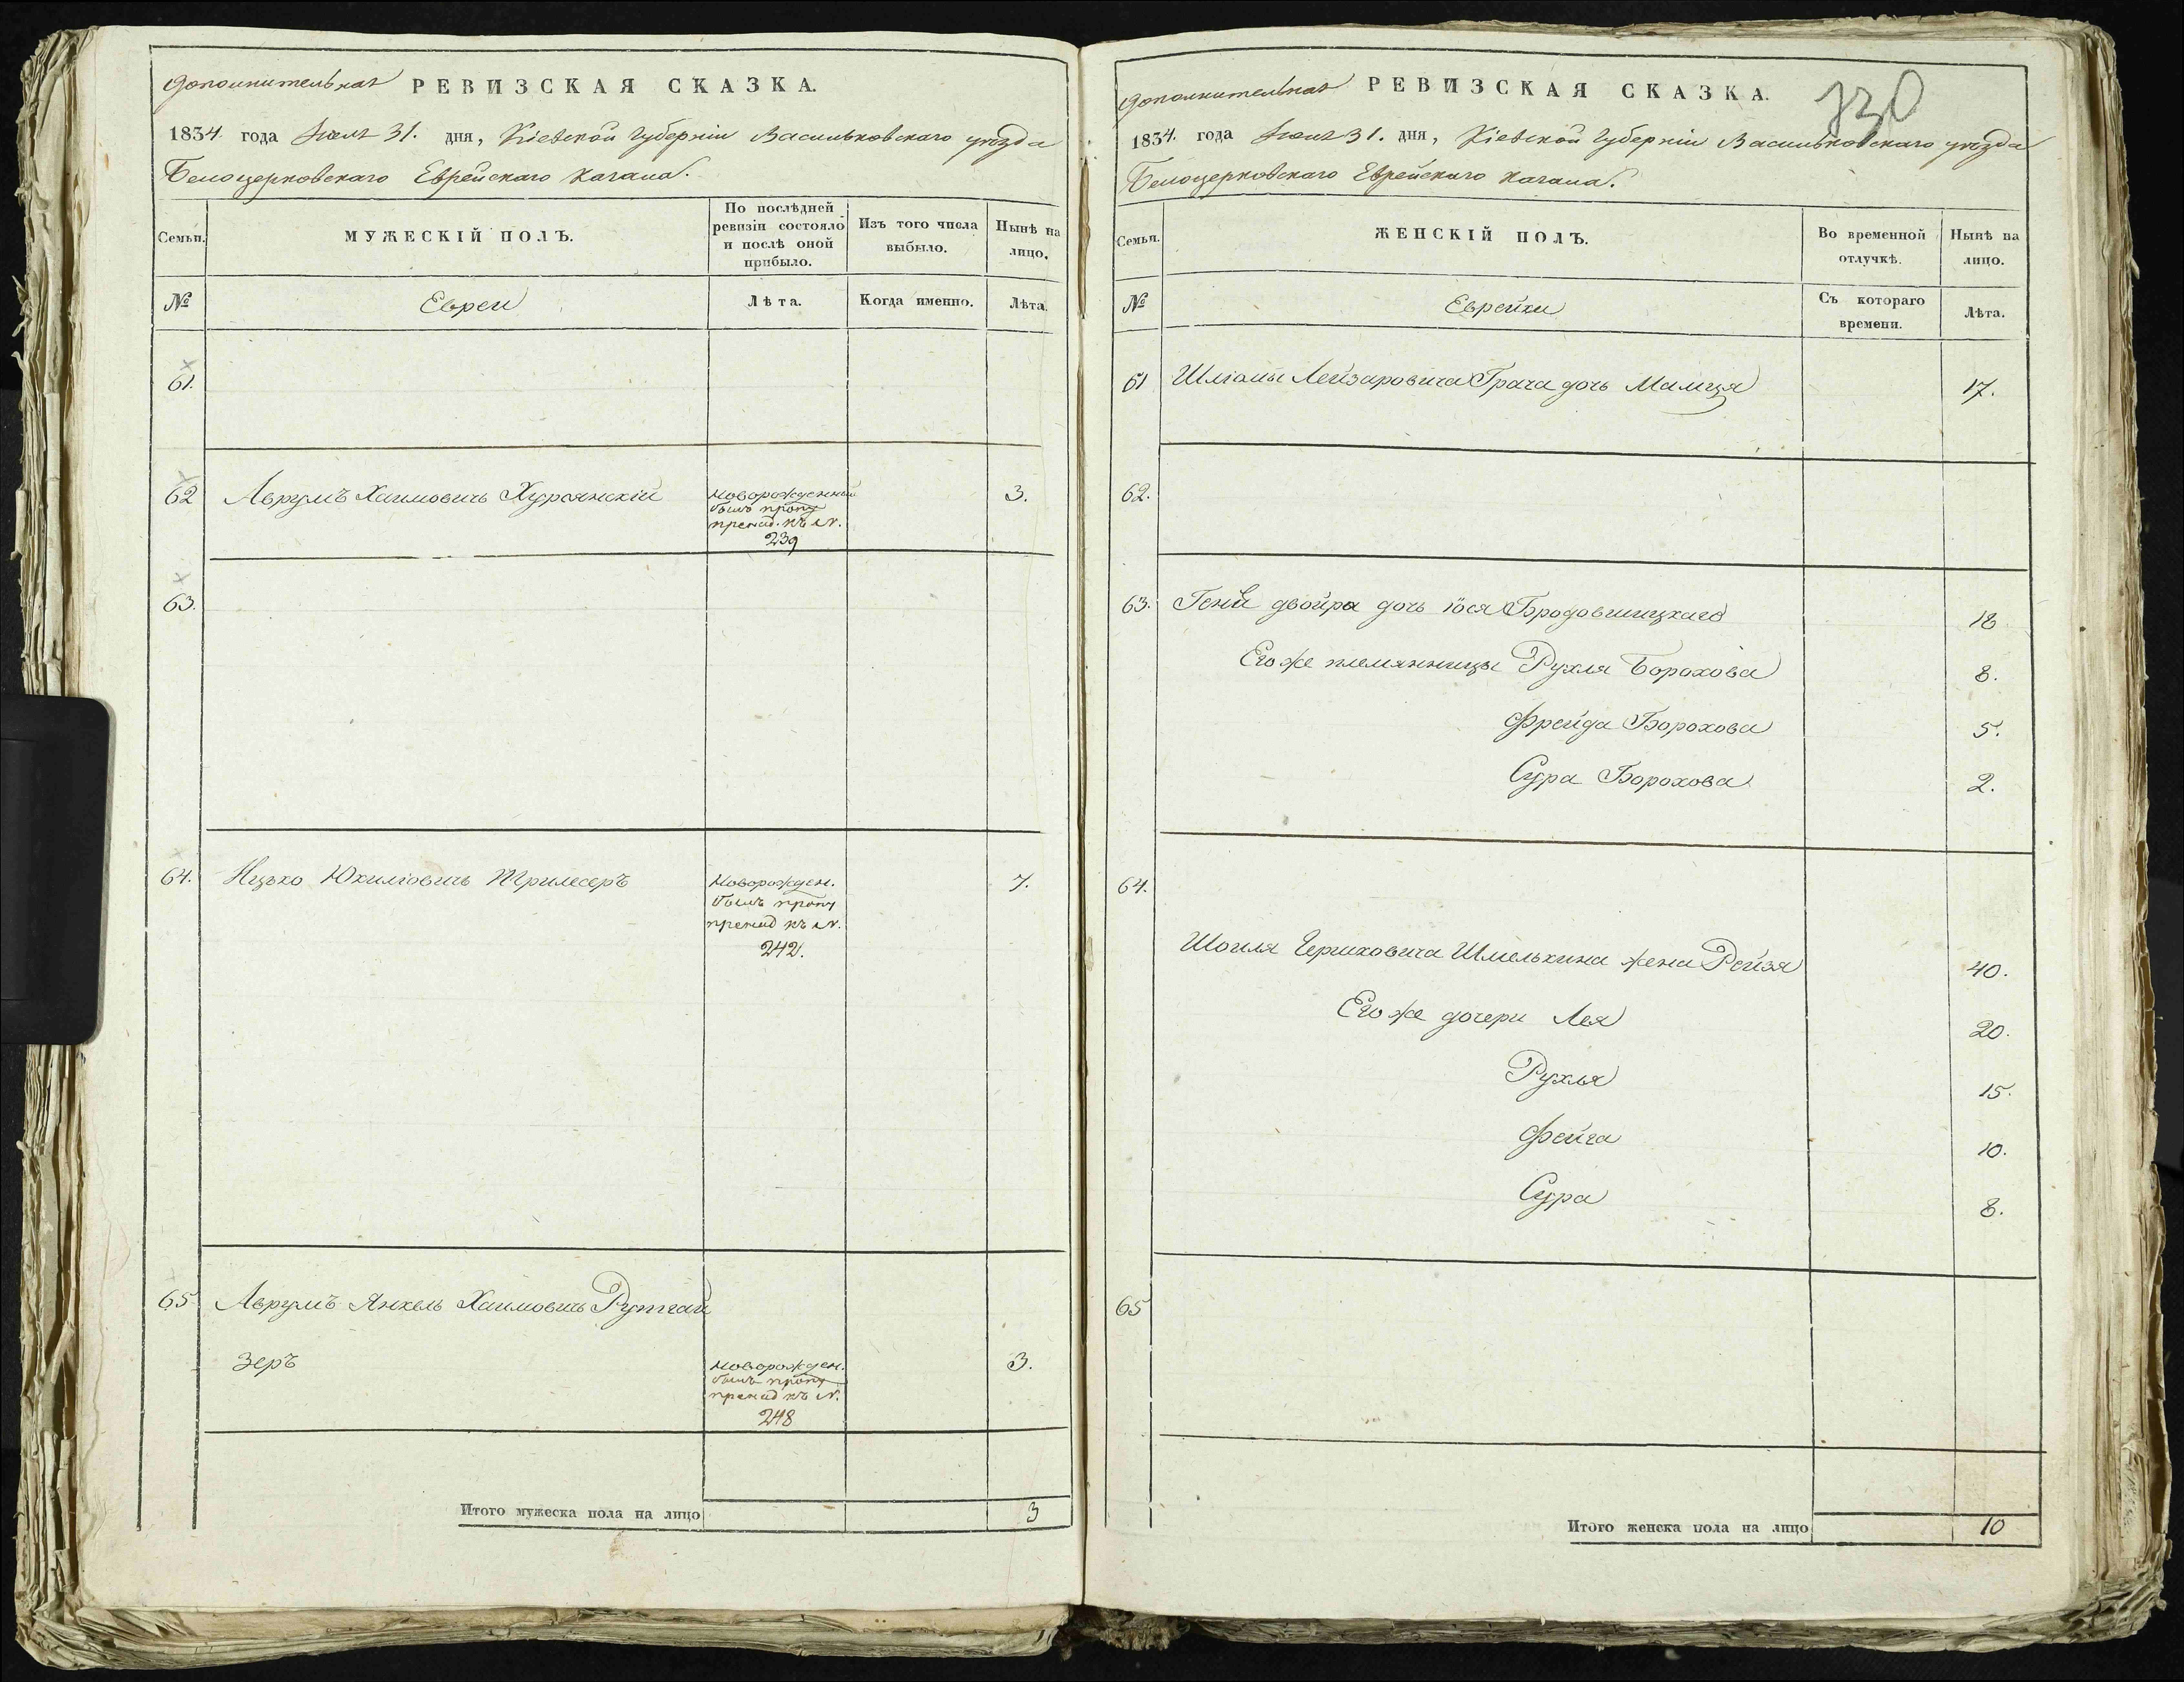 Дополнительная РЕВИЗСКАЯ СКАЗКА.
1834 года Июля 31. дня, Кіевской Губерніи Васильковскаго уѣзда
Белоцерковскаго Еврейскаго Кагала.
Семьи.
МУЖЕСКІЙ ПОЛЪ.
По послѣдней
ревизіи состояло
и послѣ оной
прибыло.
Изъ того числа
выбыло.
Нынѣ на
лицо.
№
Евреи
Лѣта.
Когда именно.
Лѣта.
61.
62 Аврумъ Хаимовичь Хурсянскій новорожденный 3.
былъ проп
пренад. къ N.
239
63.
64. Ицько Юхимовичь Трилесеръ Новорожден. 7.
былъ проп
пренад къ N.
242.
65 Аврумъ Янкель Хаимовичь Рутгай
зеръ Новорожден. 3.
былъ проп
пренад къ N.
248
Итого мужеска пола на лицо 3
Дополнительная РЕВИЗСКАЯ СКАЗКА. 730
1834. года Июля 31. дня, Кіевской Губерніи Васильковскаго уѣзда
Белоцерковскаго Еврейскаго Кагала.
Семьи.
ЖЕНСКІЙ ПОЛЪ.
Во временной
отлучкѣ.
Нынѣ на
лицо.
№
Еврейки
Съ котораго
времени.
Лѣта.
61 Шліомы Лейзаровича Грача дочь Малиця 17.
62.
63. двойра дочь Іося Бродовшицкаго 18
Его же племянницы Рухля Борохова 8.
Фрейда Борохова 5.
Сура Борохова 2.
64.
Шоиля Гершковича Шмелькина жена Рейзя 40.
Его же дочери Лея 20.
Рухля 15.
Фейга 10.
Сура 8.
65
Итого женска пола на лицо 10